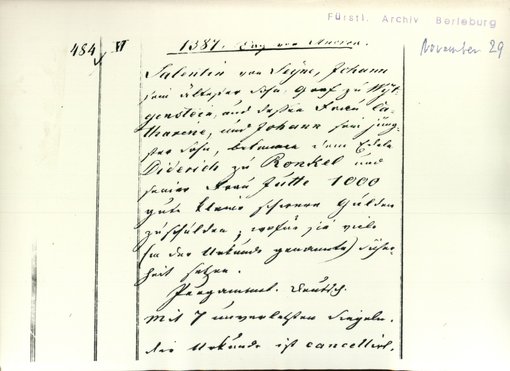 Fürstl. Archiv Berleburg
November 29
484 VI 1387. Tag von Andreä.
Salentin von Seyne, Johann
sein ältester Sohn, Graf zu Witt-
genstein, und dessen Frau Ca-
tharene, und Johann sein jüng-
ster Sohn, bekennen dem Edeln
Diderich zu Ronkel und
seiner Frau Jutte 1000
gute kleine schwere Gulden
zu schulden, wofür sie viele
(in der Urkunde genannte) Sicher-
heit setzen.
Pergament. Deutsch.
Mit 7 unverletzten Siegeln.
die Urkunde ist cancellirt.